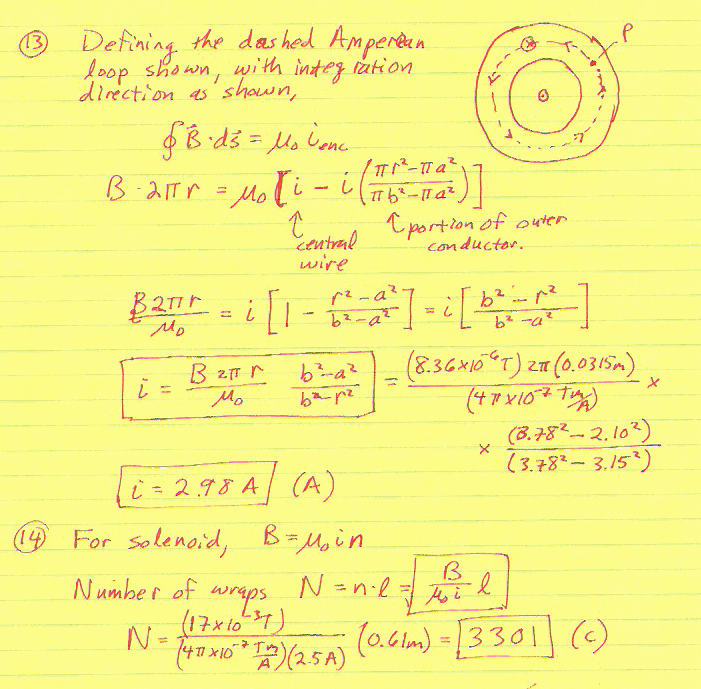 13 Defining the dashed Amperean
loop shown, with integration
direction as shown,
P
∮ B⃗ · ds⃗ = μ₀ i enc
B · 2πr = μ₀ [ i − i ( (πr² − πa²) / (πb² − πa²) ) ]
↑ central wire
↑ portion of outer conductor.
B2πr / μ₀ = i [ 1 − (r² − a²) / (b² − a²) ] = i [ (b² − r²) / (b² − a²) ]
i = (B 2πr / μ₀) (b² − a²) / (b² − r²) = (8.36×10⁻⁶T) 2π (0.0315m) / (4π×10⁻⁷ Tm/A) ×
× (3.78² − 2.10²) / (3.78² − 3.15²)
i = 2.98 A (A)
14 For solenoid, B = μ₀ i n
Number of wraps N = n·l = (B / μ₀ i) l
N = (17×10⁻³T) / (4π×10⁻⁷ Tm/A)(2.5A) (0.61m) = 3301 (C)